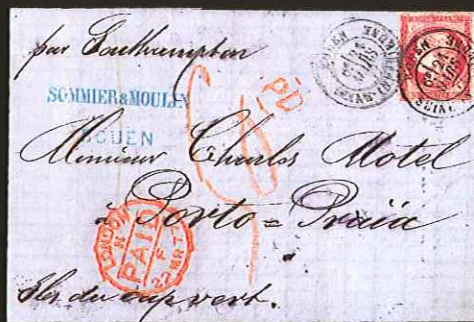 par Southampton
SOMMIER & MOULIN
ROUEN
PD
Monsieur Charles Motel
à Porto = Praia
LONDON
PAID
22 MR 7
Iles du cap vert.